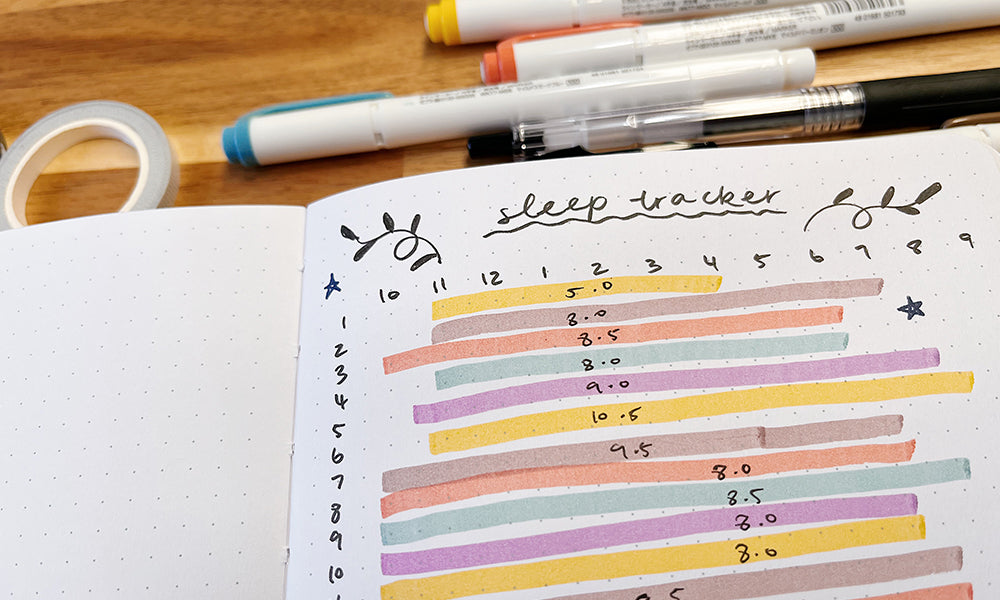 sleep tracker
10 11 12 1 2 3 4 5 6 7 8 9
5.0
1
8.0
2
8.5
3
8.0
4
9.0
5
10.5
6
9.5
7
8.0
8
8.5
9
8.0
10
8.0